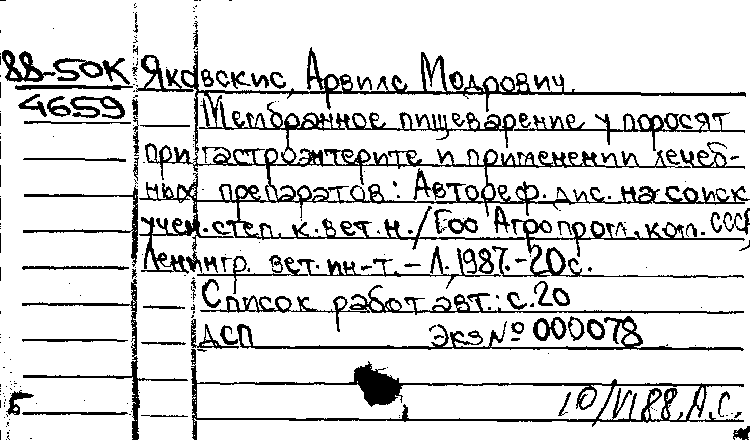 88-50К Яковскис, Арвилс Модрович.
4659 Мембранное пищеварение у поросят
при гастроэнтерите и применении лечеб-
ных препаратов: Автореф. дис. на соиск
учен. степ. к. вет. н. / Гос Агропром. ком. СССР,
Ленингр. вет. ин-т. - Л. 1987. - 20 с.
Список работ авт.: с. 20
ДСП Экз № 000078
Б 10/VI 88. А.С.